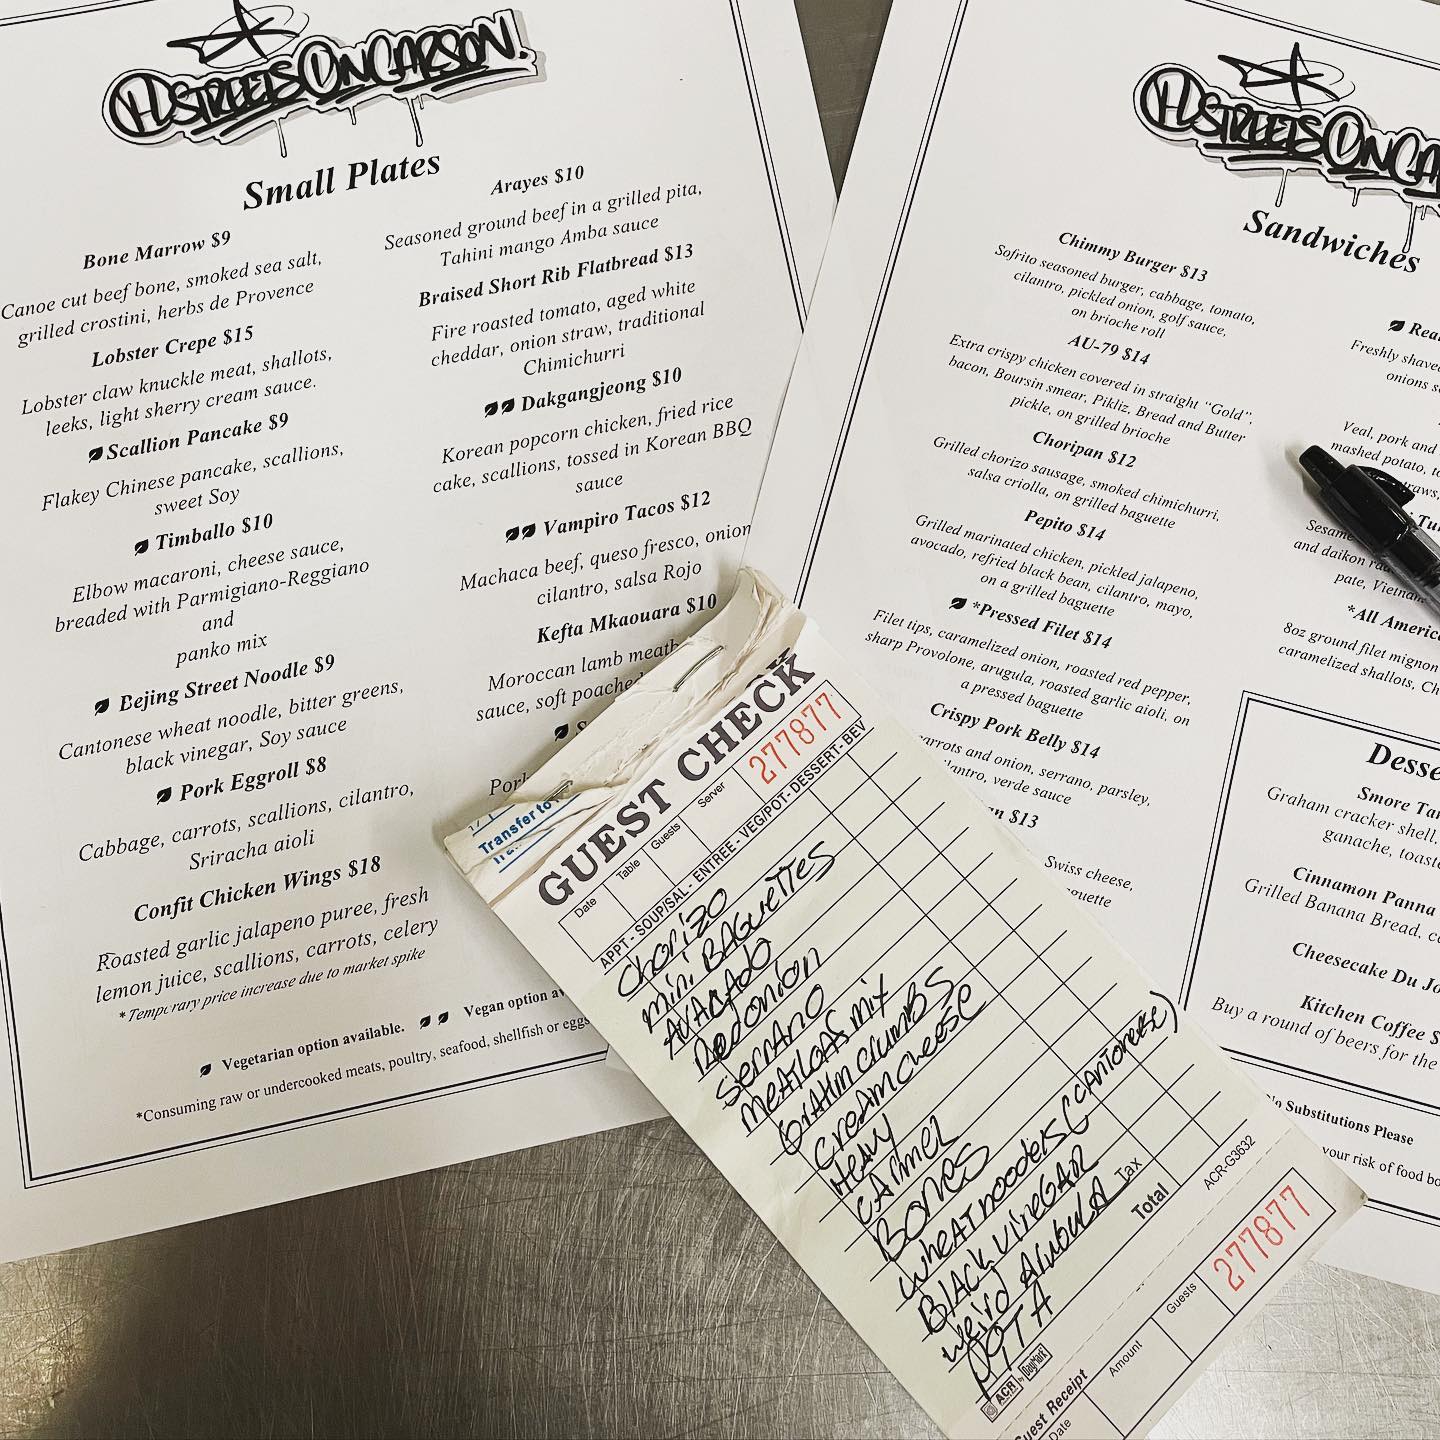 @STREETSONCARSON.
Small Plates
Bone Marrow $9
Canoe cut beef bone, smoked sea salt,
grilled crostini, herbs de Provence
Lobster Crepe $15
Lobster claw knuckle meat, shallots,
leeks, light sherry cream sauce.
Scallion Pancake $9
Flakey Chinese pancake, scallions,
sweet Soy
Timballo $10
Elbow macaroni, cheese sauce,
breaded with Parmigiano-Reggiano
and
panko mix
Bejing Street Noodle $9
Cantonese wheat noodle, bitter greens,
black vinegar, Soy sauce
Pork Eggroll $8
Cabbage, carrots, scallions, cilantro,
Sriracha aioli
Confit Chicken Wings $18
Roasted garlic jalapeno puree, fresh
lemon juice, scallions, carrots, celery
*Temporary price increase due to market spike
Arayes $10
Seasoned ground beef in a grilled pita,
Tahini mango Amba sauce
Braised Short Rib Flatbread $13
Fire roasted tomato, aged white
cheddar, onion straw, traditional
Chimichurri
Dakgangjeong $10
Korean popcorn chicken, fried rice
cake, scallions, tossed in Korean BBQ
sauce
Vampiro Tacos $12
Machaca beef, queso fresco, onion
cilantro, salsa Rojo
Kefta Mkaouara $10
Moroccan lamb meatb
sauce, soft poached
S
Por
Vegetarian option available. Vegan option av
*Consuming raw or undercooked meats, poultry, seafood, shellfish or eggs
@STREETSONCA
Sandwiches
Chimmy Burger $13
Sofrito seasoned burger, cabbage, tomato,
cilantro, pickled onion, golf sauce,
on brioche roll
AU-79 $14
Extra crispy chicken covered in straight "Gold",
bacon, Boursin smear, Pikliz, Bread and Butter
pickle, on grilled brioche
Choripan $12
Grilled chorizo sausage, smoked chimichurri,
salsa criolla, on grilled baguette
Pepito $14
Grilled marinated chicken, pickled jalapeno,
avocado, refried black bean, cilantro, mayo,
on a grilled baguette
*Pressed Filet $14
Filet tips, caramelized onion, roasted red pepper,
sharp Provolone, arugula, roasted garlic aioli, on
a pressed baguette
Crispy Pork Belly $14
arrots and onion, serrano, parsley,
lantro, verde sauce
an $13
Swiss cheese,
guette
Rea
Freshly shave
onions s
Veal, pork and
mashed potato, to
traws,
i Tu
Sesame
and daikon ra
pate, Vietnam
*All America
8oz ground filet mignon
caramelized shallots, Ch
Desse
Smore Tar
Graham cracker shell,
ganache, toaste
Cinnamon Panna
Grilled Banana Bread, c
Cheesecake Du Jo
Kitchen Coffee $
Buy a round of beers for the
No Substitutions Please
your risk of food bo
Transfer to
GUEST CHECK
Date Table Guests Server 277877
APPT - SOUP/SAL - ENTREE - VEG/POT - DESSERT - BEV
Chorizo
mini BAGueTTes
AVACADO
Red onion
Serrano
MEATLOAF mix
GrAHm CrumBS
CreamCheese
HeAVY
CArmel
BONES
WheAT noodels (CANTONese)
BlAck VineGAR
Weird ArubulA
PITA
Tax
Total
ACR by DayMark ACR-G3632
Guest Receipt
Date Amount Guests 277877